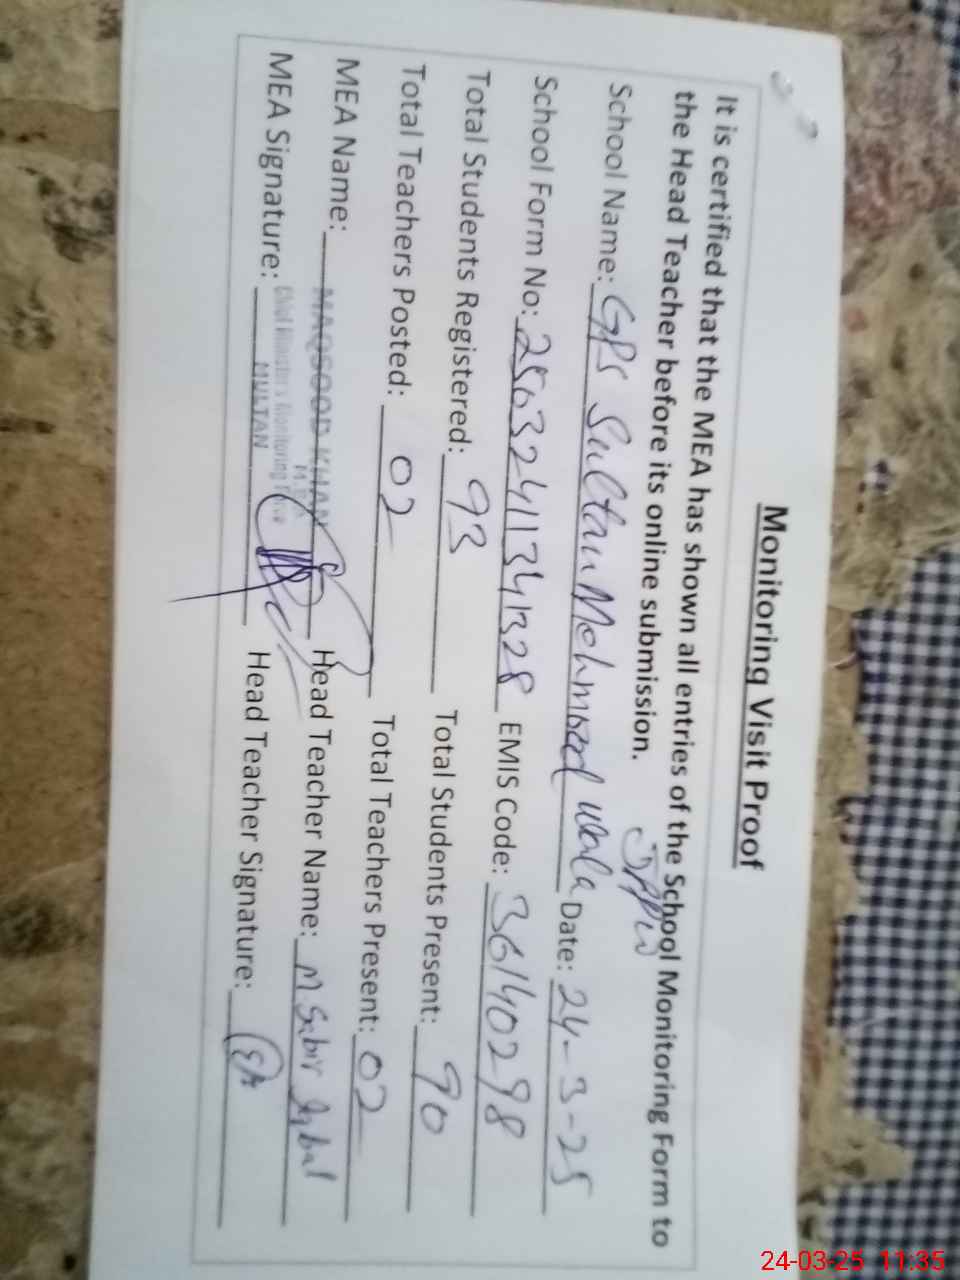 Monitoring Visit Proof
It is certified that the MEA has shown all entries of the School Monitoring Form to
the Head Teacher before its online submission.
School Name: GPS Sultan Mehmood wala Date: 24-3-25
School Form No: EMIS Code: 36140298
Total Students Registered: 93 Total Students Present: 90
Total Teachers Posted: 02 Total Teachers Present: 02
MEA Name: MAQSOOD KHAN Head Teacher Name: M. Sabir Iqbal
M.E.A
Chief Minister's Monitoring Force
MEA Signature: MULTAN Head Teacher Signature:
24-03-25 11:35